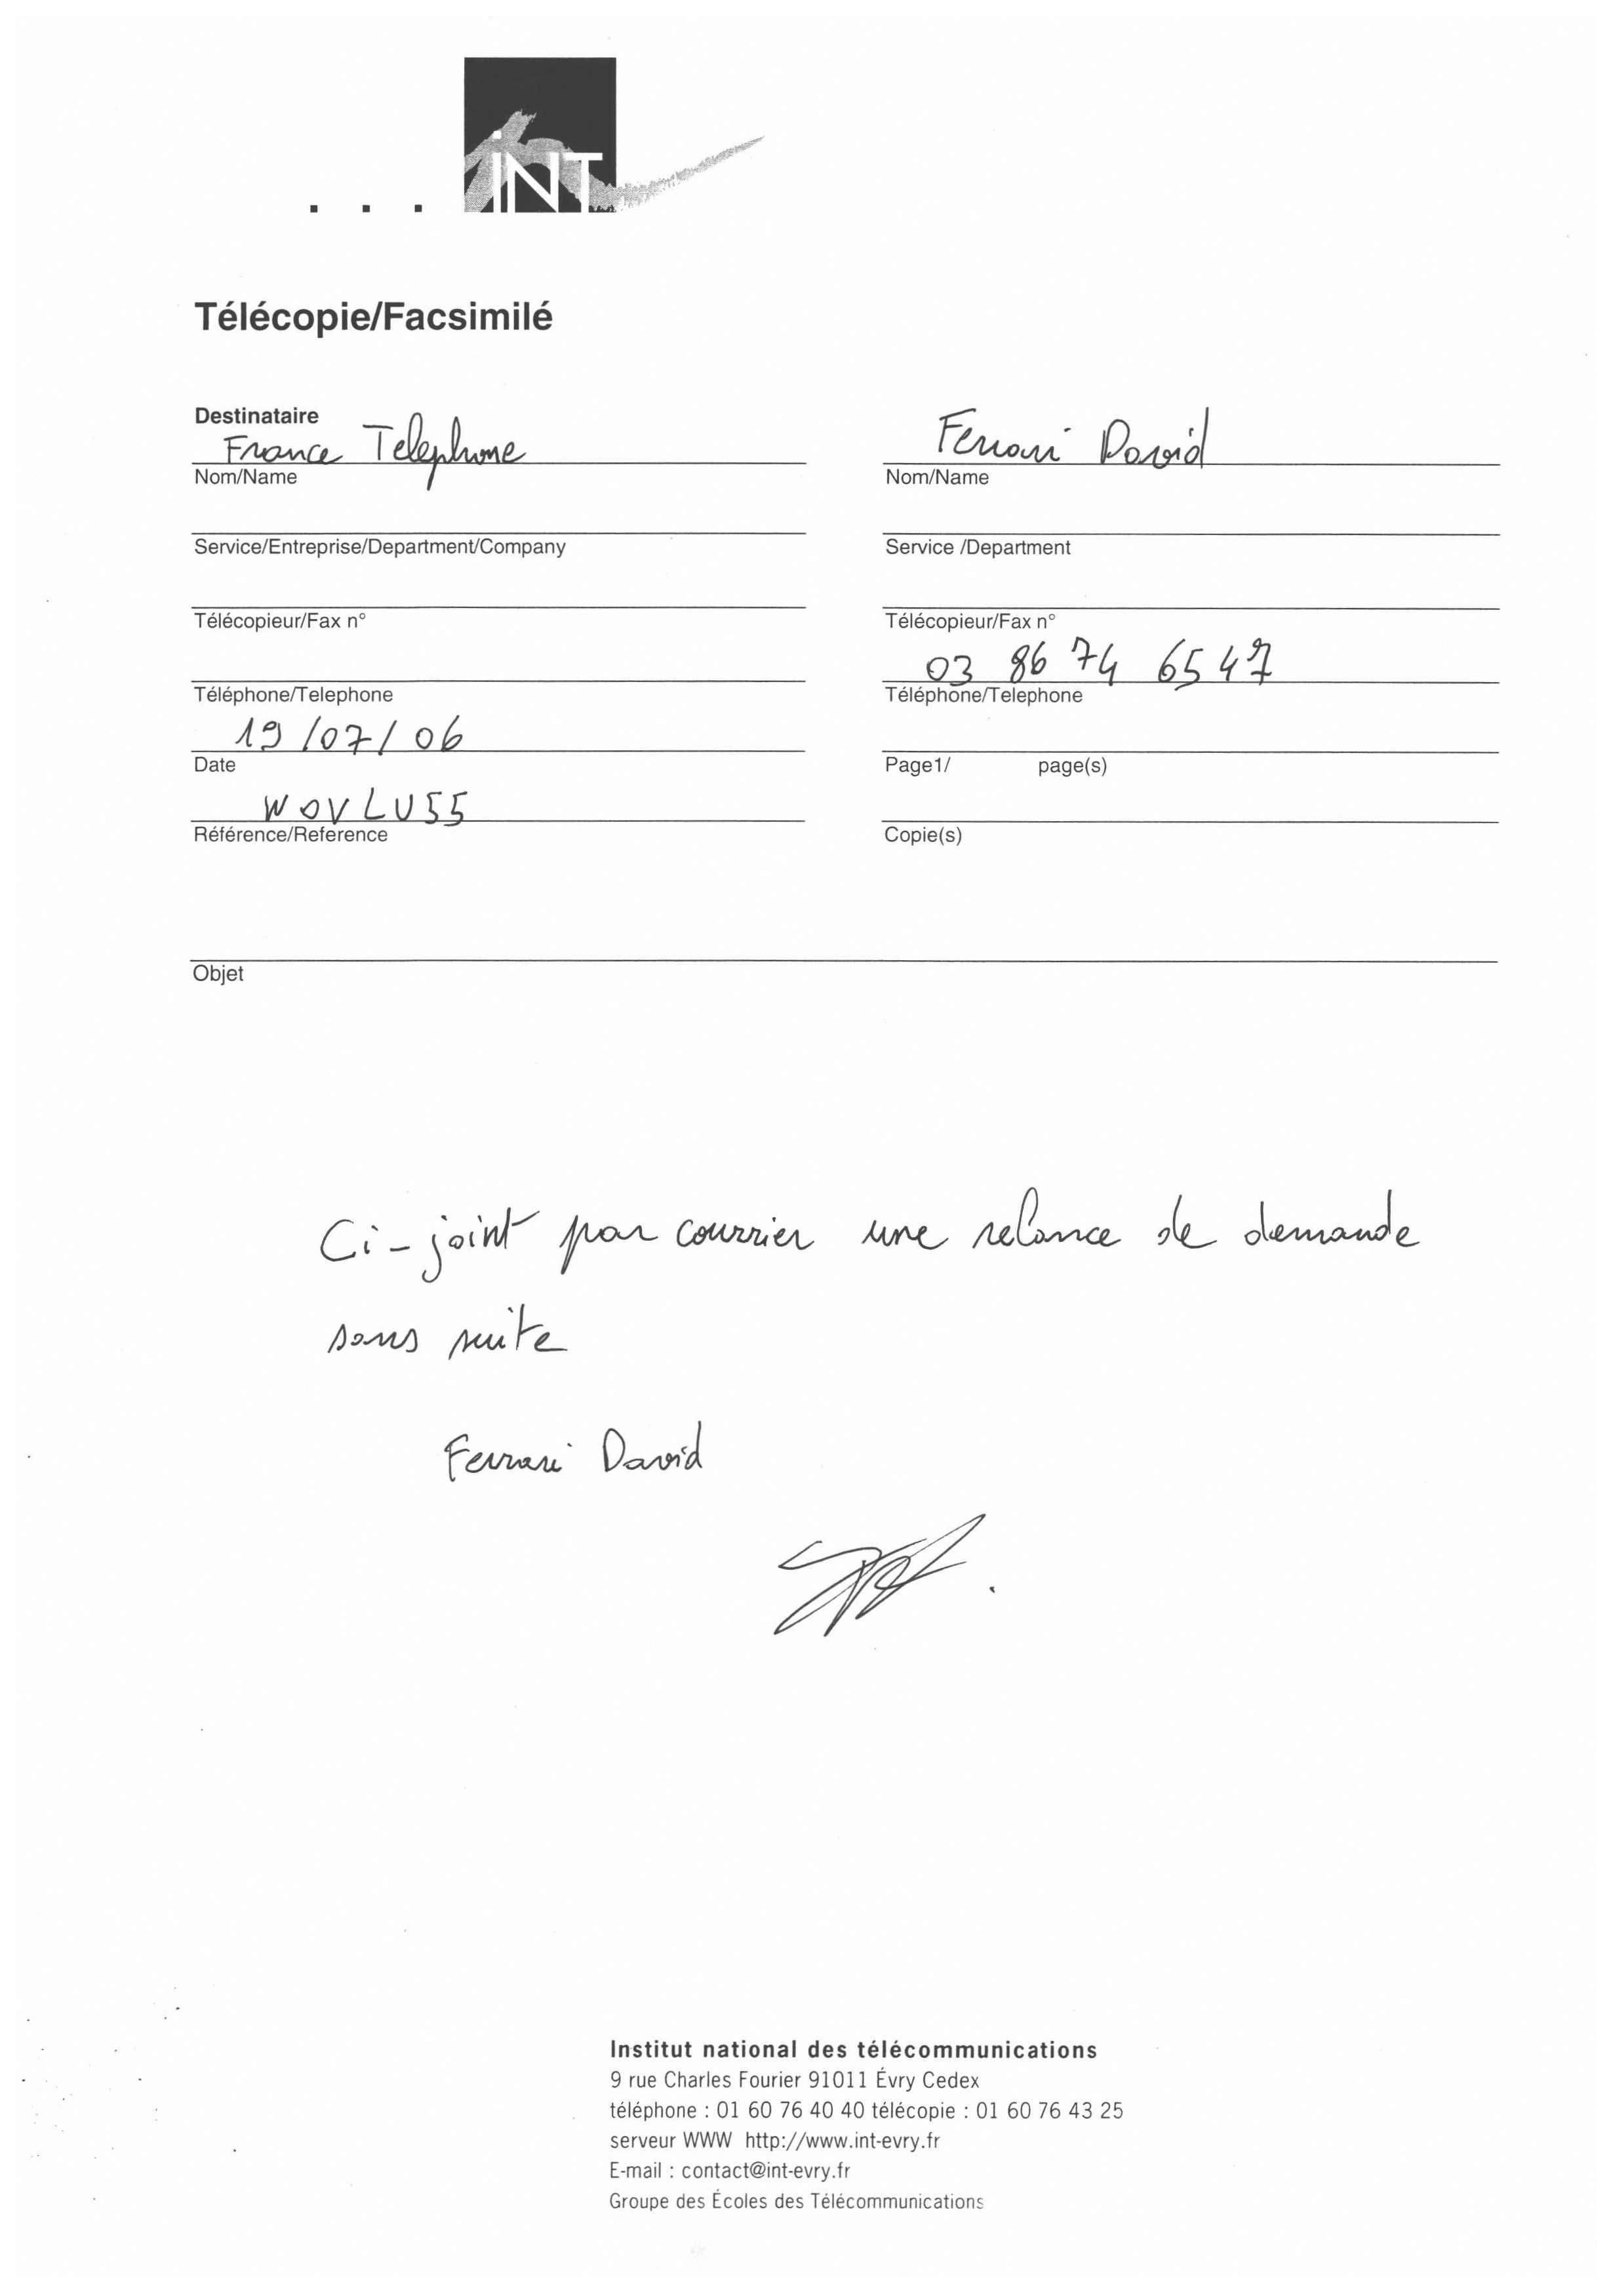 iNT
Télécopie/Facsimilé
Destinataire
France Telephone
Nom/Name
Service/Entreprise/Department/Company
Télécopieur/Fax n°
Téléphone/Telephone
19/07/06
Date
WOVLU55
Référence/Reference
Ferrari David
Nom/Name
Service /Department
Télécopieur/Fax n°
03 86 74 65 47
Téléphone/Telephone
Page1/ page(s)
Copie(s)
Objet
Ci-joint par courrier une relance de demande
sans suite
Ferrari David
Institut national des télécommunications
9 rue Charles Fourier 91011 Évry Cedex
téléphone : 01 60 76 40 40 télécopie : 01 60 76 43 25
serveur WWW http://www.int-evry.fr
E-mail : contact@int-evry.fr
Groupe des Écoles des Télécommunications